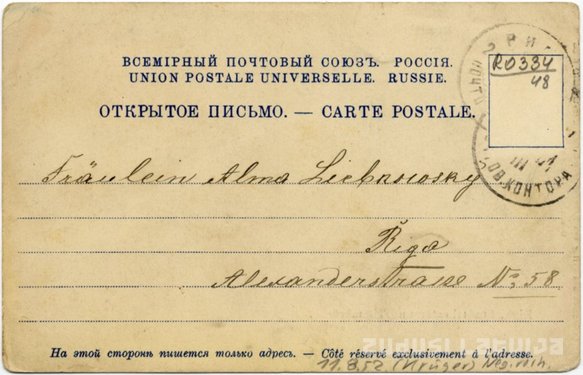 ВСЕМІРНЫЙ ПОЧТОВЫЙ СОЮЗЪ. РОССІЯ.
UNION POSTALE UNIVERSELLE. RUSSIE.
ОТКРЫТОЕ ПИСЬМО. — CARTE POSTALE.
R0334
48
РИ
ПОЧТО
III
КОНТОРА
Fräulein Alma
Riga
Alexanderstrasse No 58
На этой сторонѣ пишется только адресъ. — Côté réservé exclusivement à l'adresse.
(Krüger)